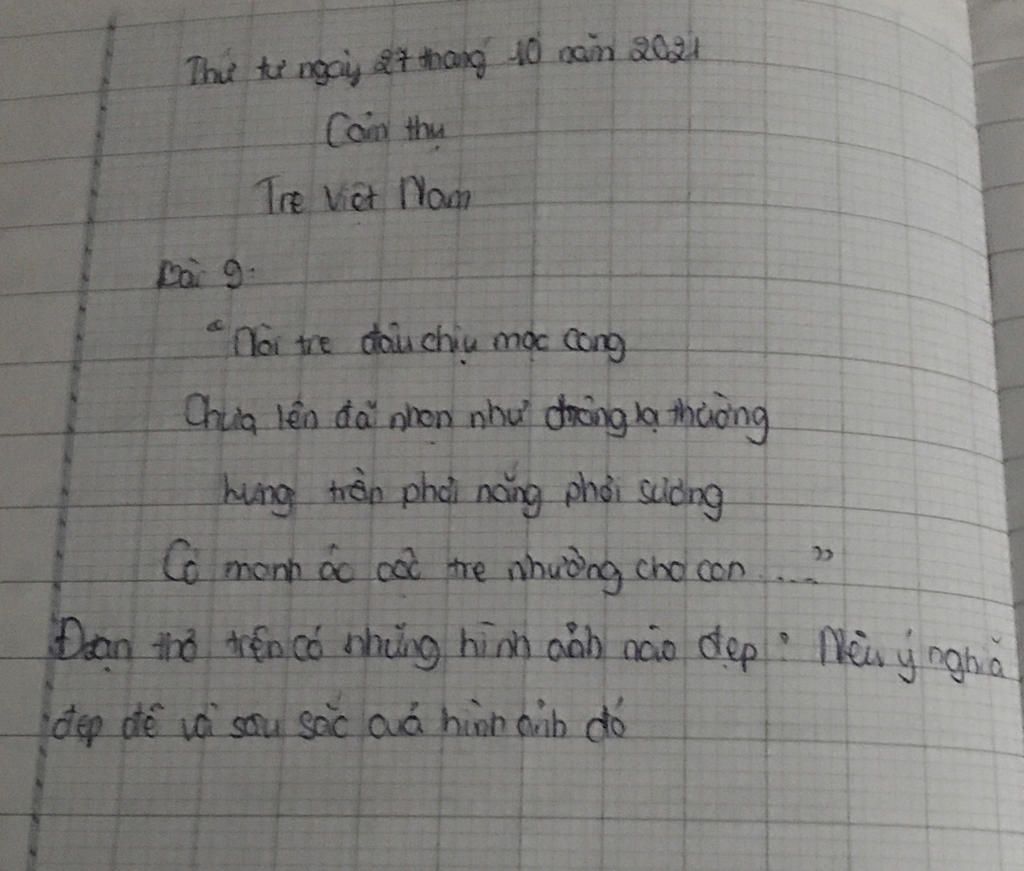 Thứ tư ngày 27 tháng 10 năm 2021
Cảm thụ
Tre Việt Nam
Bài 9:
"Nòi tre đâu chịu mọc cong
Chưa lên đã nhọn như chông lạ thường
Lưng trần phơi nắng phơi sương
Có manh áo cộc tre nhường cho con ...."
Đoạn thơ trên có những hình ảnh nào đẹp? Nêu ý nghĩa
đẹp đẽ và sâu sắc quá hình ảnh đó